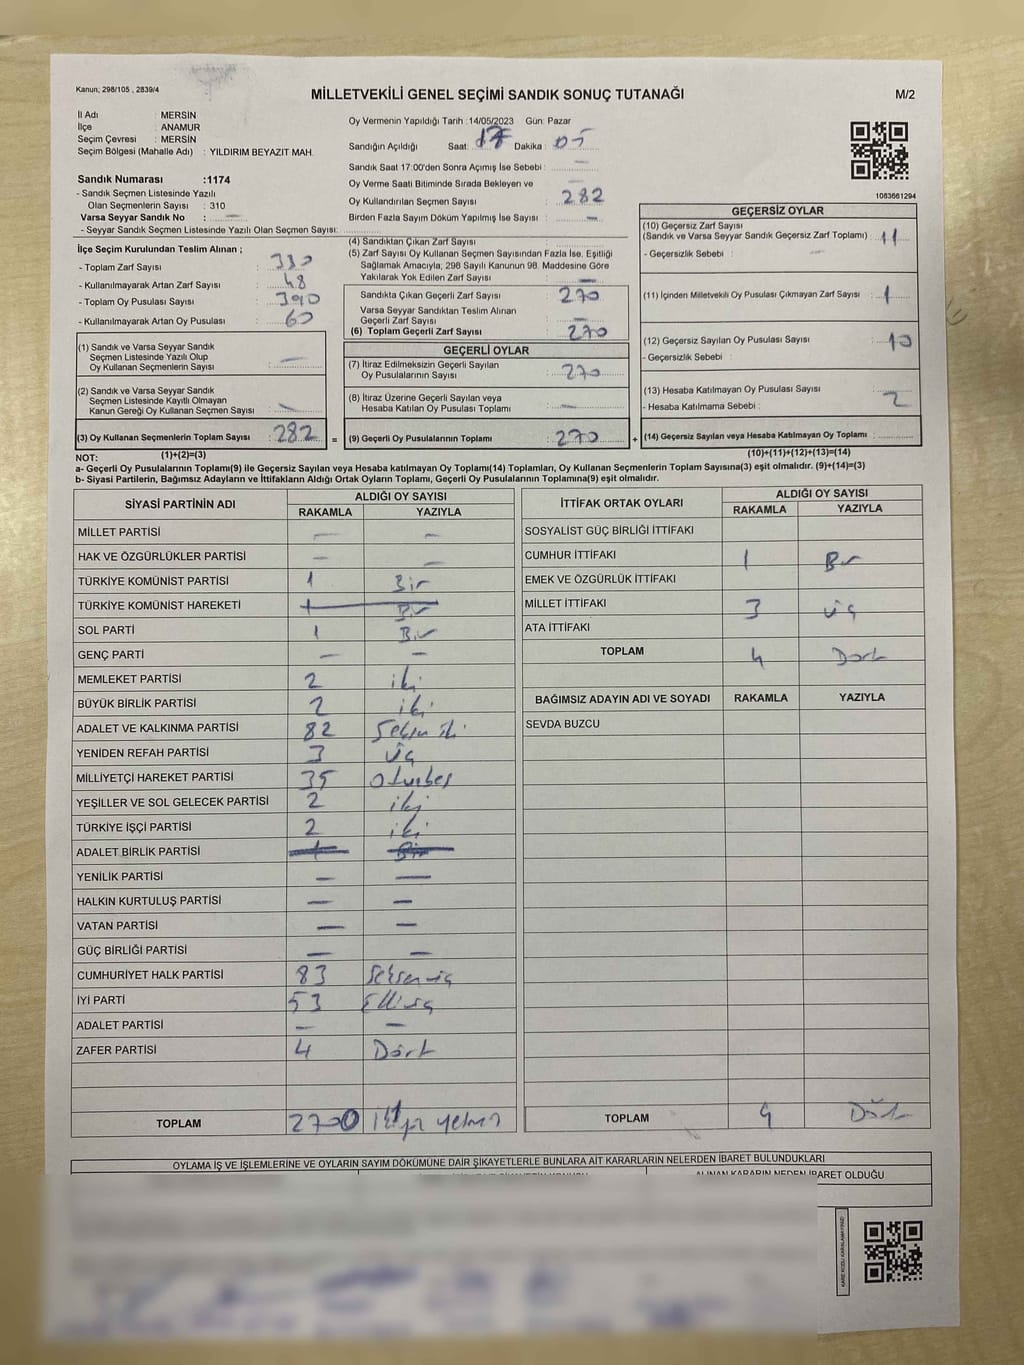 Kanun; 298/105 , 2839/4
MİLLETVEKİLİ GENEL SEÇİMİ SANDIK SONUÇ TUTANAĞI
M/2
İl Adı : MERSİN
İlçe : ANAMUR
Seçim Çevresi : MERSİN
Seçim Bölgesi (Mahalle Adı) : YILDIRIM BEYAZIT MAH.
Sandık Numarası :1174
- Sandık Seçmen Listesinde Yazılı
Olan Seçmenlerin Sayısı : 310
Varsa Seyyar Sandık No : —
- Seyyar Sandık Seçmen Listesinde Yazılı Olan Seçmen Sayısı:
Oy Vermenin Yapıldığı Tarih :14/05/2023 Gün: Pazar
Sandığın Açıldığı Saat: 17 Dakika : 05
Sandık Saat 17:00'den Sonra Açımış İse Sebebi : —
Oy Verme Saati Bitiminde Sırada Bekleyen ve
Oy Kullandırılan Seçmen Sayısı : 282
Birden Fazla Sayım Döküm Yapılmış İse Sayısı : —
1083661294
İlçe Seçim Kurulundan Teslim Alınan ;
- Toplam Zarf Sayısı : 330
- Kullanılmayarak Artan Zarf Sayısı : 48
- Toplam Oy Pusulası Sayısı : 390
- Kullanılmayarak Artan Oy Pusulası : 60
(1) Sandık ve Varsa Seyyar Sandık
Seçmen Listesinde Yazılı Olup
Oy Kullanan Seçmenlerin Sayısı : —
(2) Sandık ve Varsa Seyyar Sandık
Seçmen Listesinde Kayıtlı Olmayan
Kanun Gereği Oy Kullanan Seçmen Sayısı : —
(3) Oy Kullanan Seçmenlerin Toplam Sayısı : 282 =
(4) Sandıktan Çıkan Zarf Sayısı :
(5) Zarf Sayısı Oy Kullanan Seçmen Sayısından Fazla İse, Eşitliği
Sağlamak Amacıyla; 298 Sayılı Kanunun 98. Maddesine Göre
Yakılarak Yok Edilen Zarf Sayısı : —
Sandıkta Çıkan Geçerli Zarf Sayısı : 270
Varsa Seyyar Sandıktan Teslim Alınan
Geçerli Zarf Sayısı : —
(6) Toplam Geçerli Zarf Sayısı : 270
GEÇERLİ OYLAR
(7) İtiraz Edilmeksizin Geçerli Sayılan
Oy Pusulalarının Sayısı : 270
(8) İtiraz Üzerine Geçerli Sayılan veya
Hesaba Katılan Oy Pusulası Toplamı : —
(9) Geçerli Oy Pusulalarının Toplamı : 270 +
GEÇERSİZ OYLAR
(10) Geçersiz Zarf Sayısı
(Sandık ve Varsa Seyyar Sandık Geçersiz Zarf Toplamı) : 11
- Geçersizlik Sebebi : —
(11) İçinden Milletvekili Oy Pusulası Çıkmayan Zarf Sayısı : 1
(12) Geçersiz Sayılan Oy Pusulası Sayısı : 10
- Geçersizlik Sebebi :
(13) Hesaba Katılmayan Oy Pusulası Sayısı : 2
- Hesaba Katılmama Sebebi :
(14) Geçersiz Sayılan veya Hesaba Katılmayan Oy Pusulası Toplamı :
NOT: (1)+(2)=(3) (10)+(11)+(12)+(13)=(14)
a- Geçerli Oy Pusulalarının Toplamı(9) ile Geçersiz Sayılan veya Hesaba katılmayan Oy Toplamı(14) Toplamları, Oy Kullanan Seçmenlerin Toplam Sayısına(3) eşit olmalıdır. (9)+(14)=(3)
b- Siyasi Partilerin, Bağımsız Adayların ve İttifakların Aldığı Ortak Oyların Toplamı, Geçerli Oy Pusulalarının Toplamına(9) eşit olmalıdır.
SİYASİ PARTİNİN ADI ALDIĞI OY SAYISI
RAKAMLA YAZIYLA
MİLLET PARTİSİ — —
HAK VE ÖZGÜRLÜKLER PARTİSİ — —
TÜRKİYE KOMÜNİST PARTİSİ 1 Bir
TÜRKİYE KOMÜNİST HAREKETİ 1 Bir
SOL PARTİ 1 Bir
GENÇ PARTİ — —
MEMLEKET PARTİSİ 2 iki
BÜYÜK BİRLİK PARTİSİ 2 iki
ADALET VE KALKINMA PARTİSİ 82 Seksen iki
YENİDEN REFAH PARTİSİ 3 üç
MİLLİYETÇİ HAREKET PARTİSİ 35 Otuzbeş
YEŞİLLER VE SOL GELECEK PARTİSİ 2 iki
TÜRKİYE İŞÇİ PARTİSİ 2 iki
ADALET BİRLİK PARTİSİ 1 Bir
YENİLİK PARTİSİ — —
HALKIN KURTULUŞ PARTİSİ — —
VATAN PARTİSİ — —
GÜÇ BİRLİĞİ PARTİSİ — —
CUMHURİYET HALK PARTİSİ 83 Seksenüç
İYİ PARTİ 53 Elliüç
ADALET PARTİSİ — —
ZAFER PARTİSİ 4 Dört
TOPLAM 270
İTTİFAK ORTAK OYLARI ALDIĞI OY SAYISI
RAKAMLA YAZIYLA
SOSYALIST GÜÇ BİRLİĞİ İTTİFAKI
CUMHUR İTTİFAKI 1 Bir
EMEK VE ÖZGÜRLÜK İTTİFAKI
MİLLET İTTİFAKI 3 üç
ATA İTTİFAKI
TOPLAM 4 Dört
BAĞIMSIZ ADAYIN ADI VE SOYADI RAKAMLA YAZIYLA
SEVDA BUZCU
TOPLAM 4 Dört
OYLAMA İŞ VE İŞLEMLERİNE VE OYLARIN SAYIM DÖKÜMÜNE DAİR ŞİKAYETLERLE BUNLARA AİT KARARLARIN NELERDEN İBARET BULUNDUKLARI
ALINAN KARARIN NEDEN İBARET OLDUĞU
KARE KODU KARALAMAYINIZ!